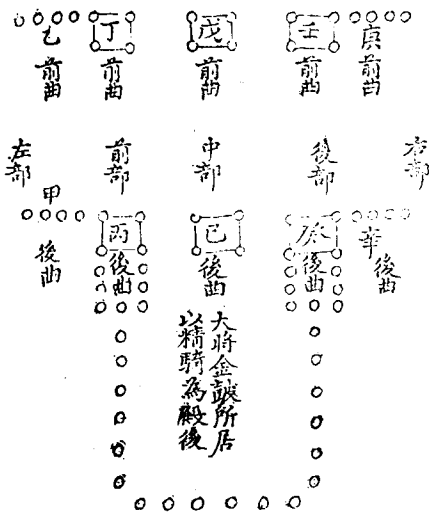 庚前曲
壬前曲
戊前曲
丁前曲
乙前曲
右部
後部
中部
前部
左部
後曲
癸後曲
己後曲
丙後曲
甲後曲
大將金鼓所居
以精騎為殿後